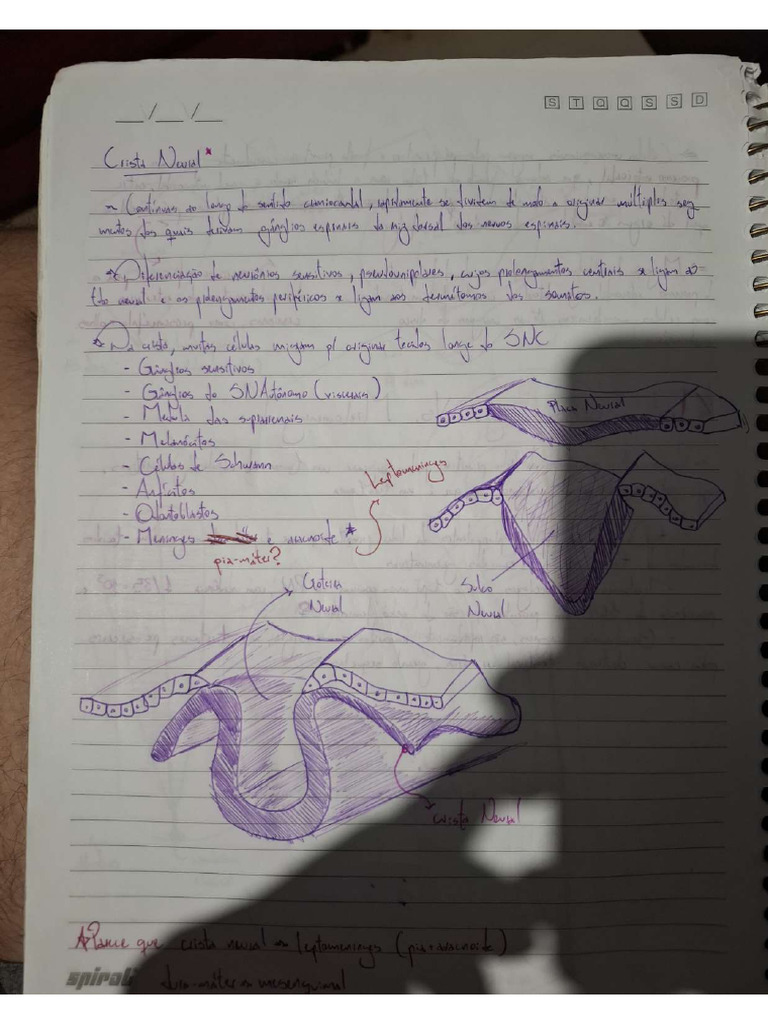 __/__/__
S T Q Q S S D
Crista Neural *
~ Contínuas ao longo do sentido craniocaudal, rapidamente se dividem de modo a originar múltiplos seg
mentos dos quais derivam gânglios espinais da raiz dorsal dos nervos espinais.
* Diferenciação de neurônios sensitivos, pseudounipolares, cujos prolongamentos centrais se ligam ao
tubo neural e os prolongamentos periféricos se ligam aos dermátomos dos somitos.
* Da crista, muitas células migram p/ originar tecidos longe do SNC
- Gânglios sensitivos
- Gânglios do SNAutônomo (viscerais)
- Medula das suprarrenais
- Melanócitos
- Células de Schwann
- Anfícitos
- Odontoblastos
- Meninges e aracnoide *
pia-máter?
Leptomeninges
Placa Neural
Sulco
Neural
Goteira
Neural
crista Neural
* Parece que, crista neural → leptomeninges (pia+aracnoide)
dura-máter → mesenquimal
spiral